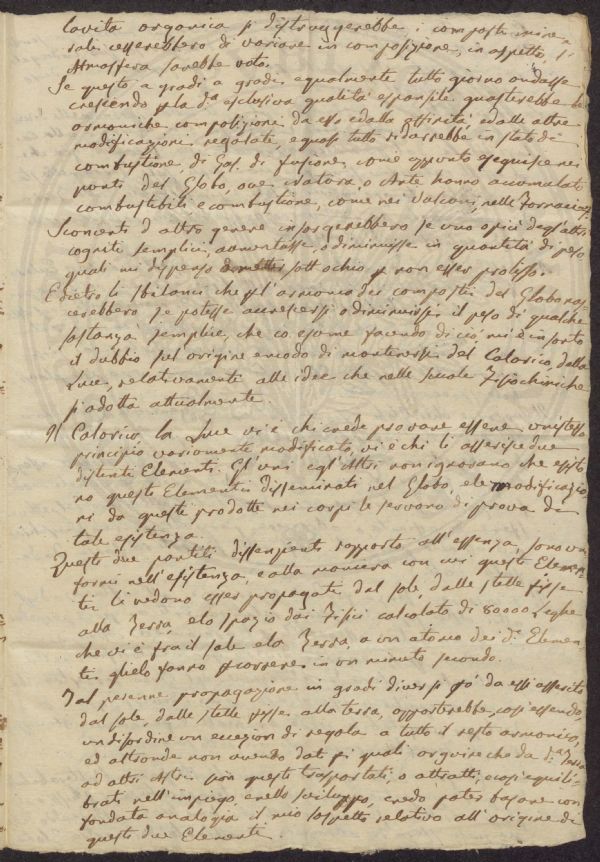 la vita organica si distruggerebbe i composti mine
rali cesserebbero di variare in composizione, in aspetto, l'
Atmosfera sarebbe vota.
Se questo a gradi a gradi equalmente tutto giorno andasse
crescendo p la d.a esclusiva qualità espansile guasterebbe le
armoniche composizioni da esso e dalla affinità e dalle altre
modificazioni regolate, e quasi tutto ridurrebbe in stato di
combustione di Gas. di fusione, come appunto eseguisce nei
ponti del Globo, ove Natura, o Arte hanno accumulati
combustibili e combustione, come nei Vulcani, nelle Fornaci
Sconcerti d'altro genere insorgerebbero se uno o più degl'altri
cogniti semplici, aumentasse, o diminuisse in quantità di peso
quali mi dispenso sott'ochio p non esser prolisso.
E dietro li sbilanci che p l'armonia dei composti del Globo na
scerebbero se potesse accrescersi o diminuirsi il peso di qualche
sostanza semplice, che co esame facendo di ciò mi è insorto
il dubbio sul origine e modo di mantenersi del Calorico, della
Luce, relativamente alle idee che nelle scuole Fisochimiche
si adotta attualmente.
Calorico, la Luce vi è chi crede provare essere un istesso
principio variamente modificato, vi è chi li asserisce due
distinti Elementi. Gl'uni e gl'Altri non ignorano che esisto
no questi Elementi disseminati nel Globo, e le modificazio
ni da questi prodotte nei corpi le servono di prova di
tale esistenza.
Questi due partiti dissenzienti rapporto all'essenza, sono un
formi nell'esistenza, e alla maniera con cui questi Elemen
ti li vedono esser propagati dal sole, dalle stelle fisse
alla Terra, e lo spazio dai Fisici calcolato di 80000 Leghe
che vi è fra il sole e la Terra, a un atomo dei d.i Elemen
ti glielo fanno pcorrere in un minuto secondo.
Tal perenne propagazione in gradi diversi da essi asserita
dal sole, dalle stelle fisse alla terra, apporterebbe, così essendo,
un disordine un eccezion di regola a tutto il resto armonico,
ed altronde non avendo dati p i quali arguire che da d.a Terra
ad altri Astri sian questi trasportati, o attratti, e così equili
brati nell'impiego, e nello sviluppo, credo poter basare con
fondata analogia il mio sospetto relativo all'origine di
questi due Elementi.